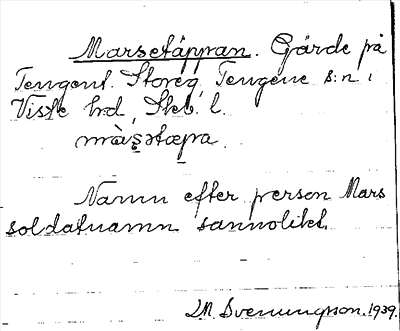 Marsetäppan. Gärde på
Tengent. Storeg, Tengene s:n i
Viste hd, Skb. l.
màṣətæpa
Namn efter person Mars
soldatnamn sannolikt.
M. Svenungsson. 1939.